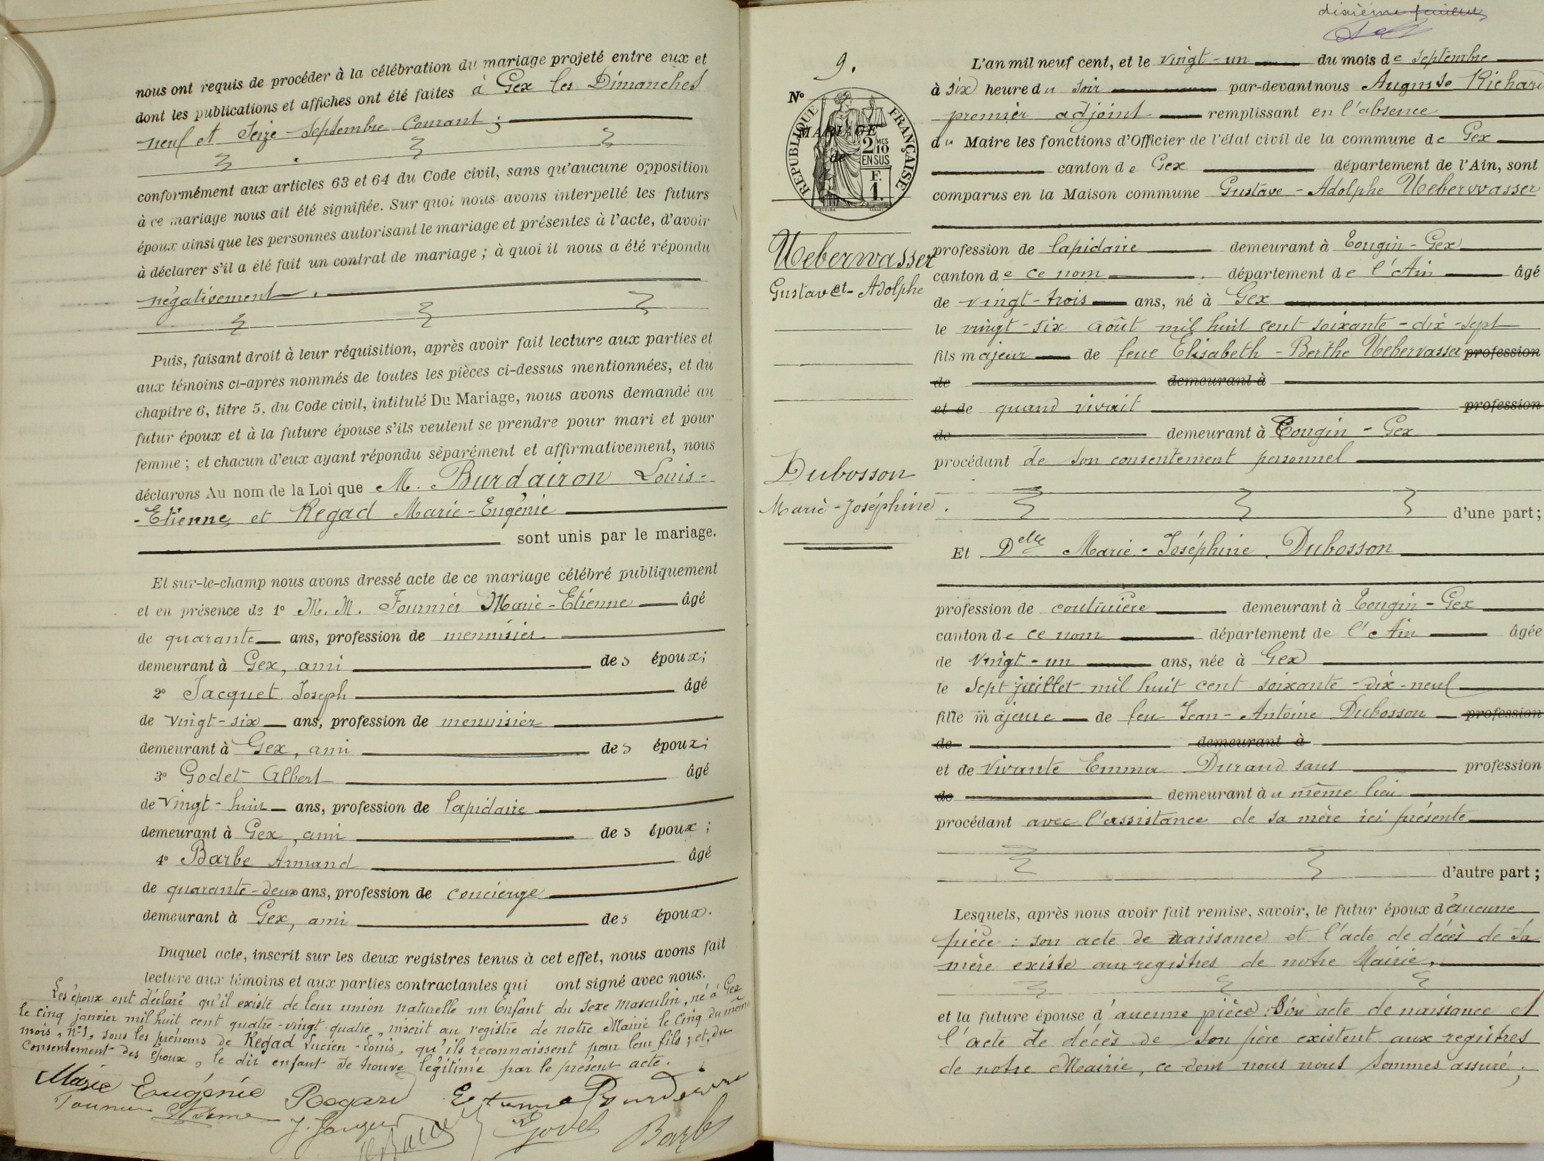 nous ont requis de procéder à la célébration du mariage projeté entre eux et
dont les publications et affiches ont été faites à Gex les Dimanches
neuf et Seize Septembre Courant ;
conformément aux articles 63 et 64 du Code civil, sans qu'aucune opposition
à ce mariage nous ait été signifiée. Sur quoi nous avons interpellé les futurs
époux ainsi que les personnes autorisant le mariage et présentes à l'acte, d'avoir
à déclarer s'il a été fait un contrat de mariage ; à quoi il nous a été répondu
négativement.
Puis, faisant droit à leur réquisition, après avoir fait lecture aux parties et
aux témoins ci-après nommés de toutes les pièces ci-dessus mentionnées, et du
chapitre 6, titre 5, du Code civil, intitulé Du Mariage, nous avons demandé au
futur époux et à la future épouse s'ils veulent se prendre pour mari et pour
femme ; et chacun d'eux ayant répondu séparément et affirmativement, nous
déclarons Au nom de la Loi que M. Burdairon Louis-
-Etienne et Regad Marie-Eugénie
sont unis par le mariage.
Et sur-le-champ nous avons dressé acte de ce mariage célébré publiquement
et en présence de 1° M. M. Fournier Marie-Etienne âgé
de quarante ans, profession de menuisier
demeurant à Gex, ami des époux;
2° Jacquet Joseph âgé
de vingt-six ans, profession de menuisier
demeurant à Gex, ami des époux;
3° Godet Albert âgé
de vingt-huit ans, profession de lapidaire
demeurant à Gex, ami des époux ;
4° Barbe Armand âgé
de quarante-deux ans, profession de concierge
demeurant à Gex, ami des époux.
Duquel acte, inscrit sur les deux registres tenus à cet effet, nous avons fait
lecture aux témoins et aux parties contractantes qui ont signé avec nous.
Les époux ont déclaré qu'il existe de leur union naturelle un Enfant du sexe masculin, né à Gex
le cinq janvier mil huit cent quatre-vingt quatre, inscrit au registre de notre Mairie le Cinq du même
mois, N°1, sous les prénoms de Regad Lucien-Louis, qu'ils reconnaissent pour leur fils ; et, du
Consentement des époux, le dit enfant se trouve légitimé par le présent acte.
Marie Eugénie Regad Etienne Burdairon
Fournier Etienne J. Jacquet Godet Barbe
dixième
9.
N°
MARIAGE
de
RÉPUBLIQUE FRANÇAISE
2 10
EN SUS
F.
1.
Ueberwasser
Gustave-Adolphe
Dubosson
Marie-Joséphine.
L'an mil neuf cent, et le vingt-un du mois de Septembre
à six heure du soir par-devant nous Auguste Richard
premier adjoint remplissant en l'absence
du Maire les fonctions d'Officier de l'état civil de la commune de Gex
canton de Gex département de l'Ain, sont
comparus en la Maison commune Gustave-Adolphe Ueberwasser
profession de lapidaire demeurant à Tougin-Gex
canton de ce nom département de l'Ain âgé
de vingt-trois ans, né à Gex
le vingt-six août mil huit cent soixante-dix-sept
fils majeur de feue Elisabeth-Berthe Ueberwasser profession
de demeurant à
et de quand vivait profession
de demeurant à Tougin-Gex
procédant de son consentement personnel
d'une part ;
Et Delle Marie-Joséphine Dubosson
profession de couturière demeurant à Tougin-Gex
canton de ce nom département de l'Ain âgée
de vingt-un ans, née à Gex
le Sept juillet mil huit cent soixante-dix-neuf
fille majeure de feu Jean-Antoine Dubosson profession
de demeurant à
et de vivante Emma Durand sans profession
de demeurant au même lieu
procédant avec l'assistance de sa mère ici présente
d'autre part ;
Lesquels, après nous avoir fait remise, savoir, le futur époux d'aucune
pièce : son acte de naissance et l'acte de décès de sa
mère existe aux registres de notre Mairie,
et la future épouse d'aucune pièce : Son acte de naissance et
l'acte de décès de son père existent aux registres
de notre Mairie, ce dont nous nous sommes assuré ;